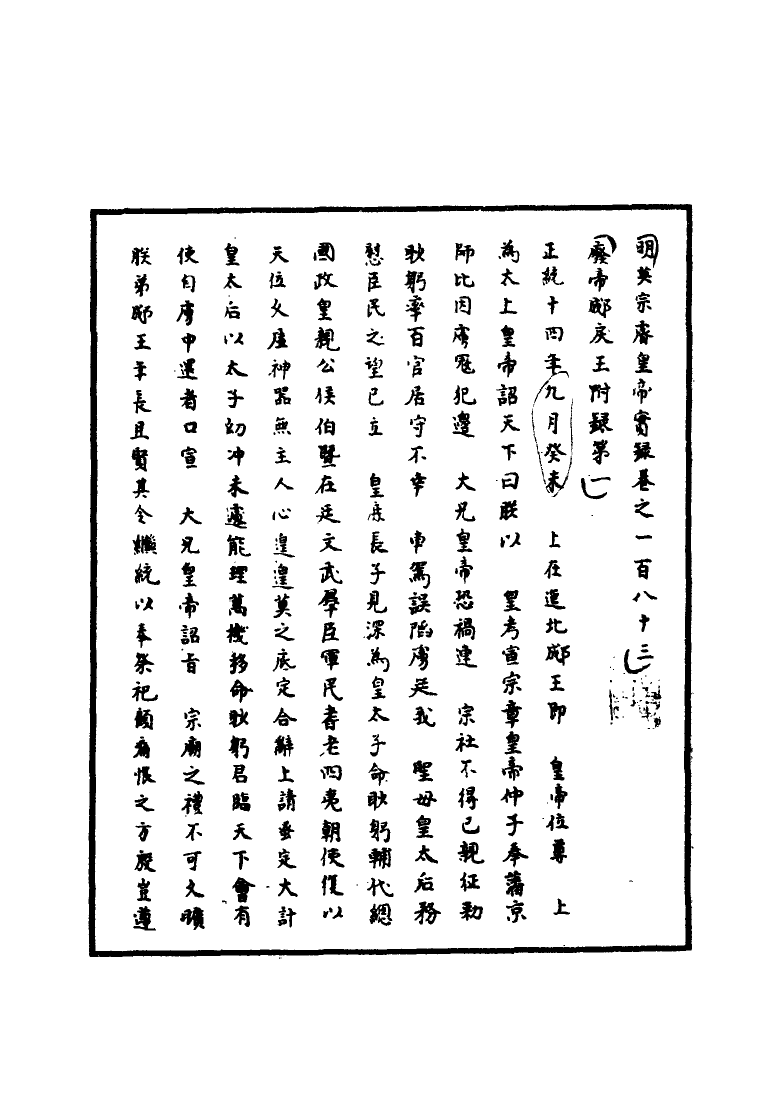 明英宗睿皇帝實録卷之一百八十三
廢帝郕戾王附録第一
正統十四年九月癸未　上在迤北郕王即　皇帝位尊　上
為太上皇帝詔天下曰朕以　皇考宣宗章皇帝仲子奉藩京
師比因虜冦犯邊　大兄皇帝恐禍連　宗社不得已親征勅
眇躬率百官居守不幸　車駕誤陷虜廷我　聖母皇太后務
慰臣民之望已立　皇庶長子見深為皇太子命眇躬輔代總
國政皇親公侯伯暨在廷文武羣臣軍民耆老四夷朝使復以
天位久虛神器無主人心遑遑莫之底定合辭上請垂定大計
皇太后以太子幼冲未遽能理萬機移命眇躬君臨天下會有
使自虜中還者口宣　大兄皇帝詔旨　宗廟之禮不可久曠
朕弟郕王年長且賢其令繼統以奉祭祀顧痛恨之方殷豈遵